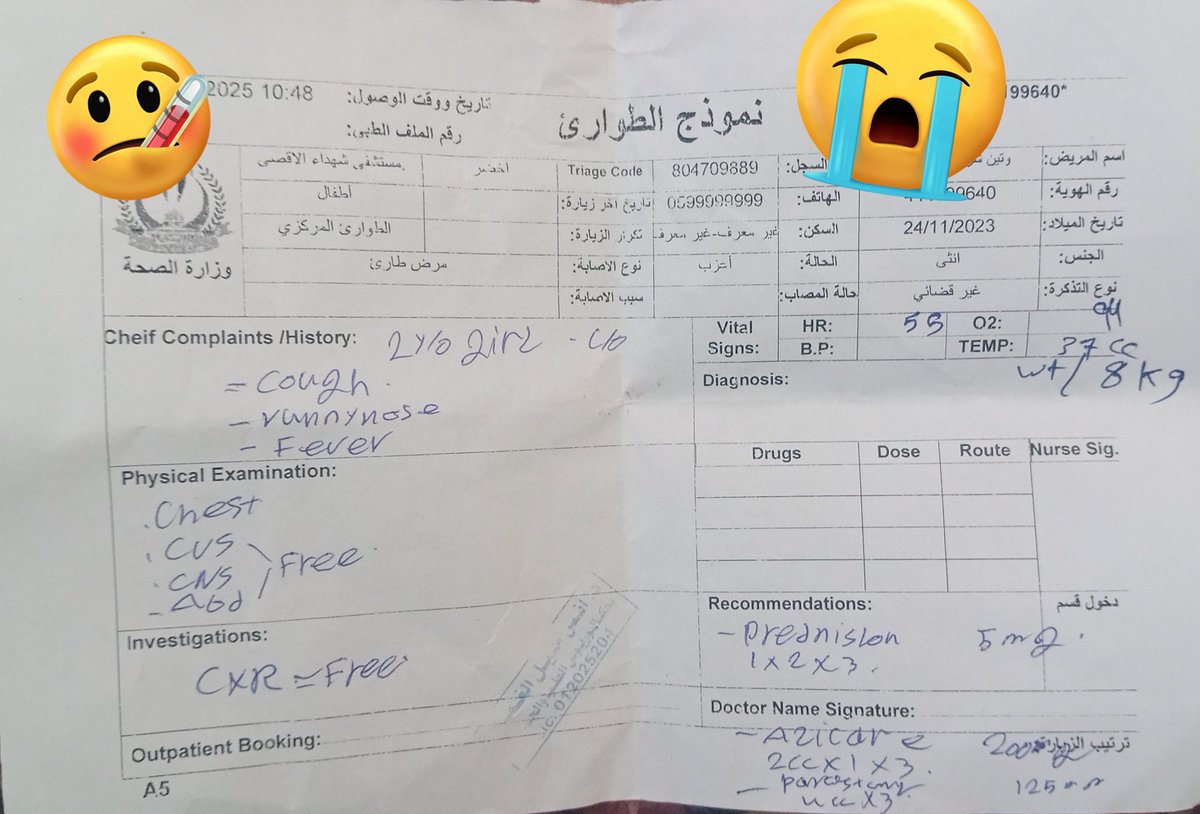 199640*
نموذج الطوارئ
تاريخ ووقت الوصول: 2025 10:48
رقم الملف الطبي:
اسم المريض: وتين
السجل: 804709889
Triage Code اخضر
مستشفى شهداء الاقصى
رقم الهوية: 99640
الهاتف: 0599999999
تاريخ اخر زيارة:
أطفال
تاريخ الميلاد: 24/11/2023
السكن: غير معرف-غير معرف
تكرار الزيارة:
الطوارئ المركزي
الجنس: انثى
الحالة: أعزب
نوع الاصابة: مرض طارئ
وزارة الصحة
نوع التذكرة: غير قضائي
حالة المصاب:
سبب الاصابة:
Cheif Complaints /History: 2 y/o girl - c/o
= cough.
- runnynose
- Fever
Vital Signs: HR: O2:
B.P: TEMP: 37 cc
wt/ 8 kg
Diagnosis:
Drugs Dose Route Nurse Sig.
Physical Examination:
. Chest
. CVS
. CNS
- Abd
Free
Recommendations: دخول قسم
- Prednislon 5 mg.
1 x 2 x 3.
Investigations:
CXR = Free
Doctor Name Signature:
- Azicare 200
2cc x 1 x 3. ترتيب الزيارة:
125
x 3
Outpatient Booking:
A5